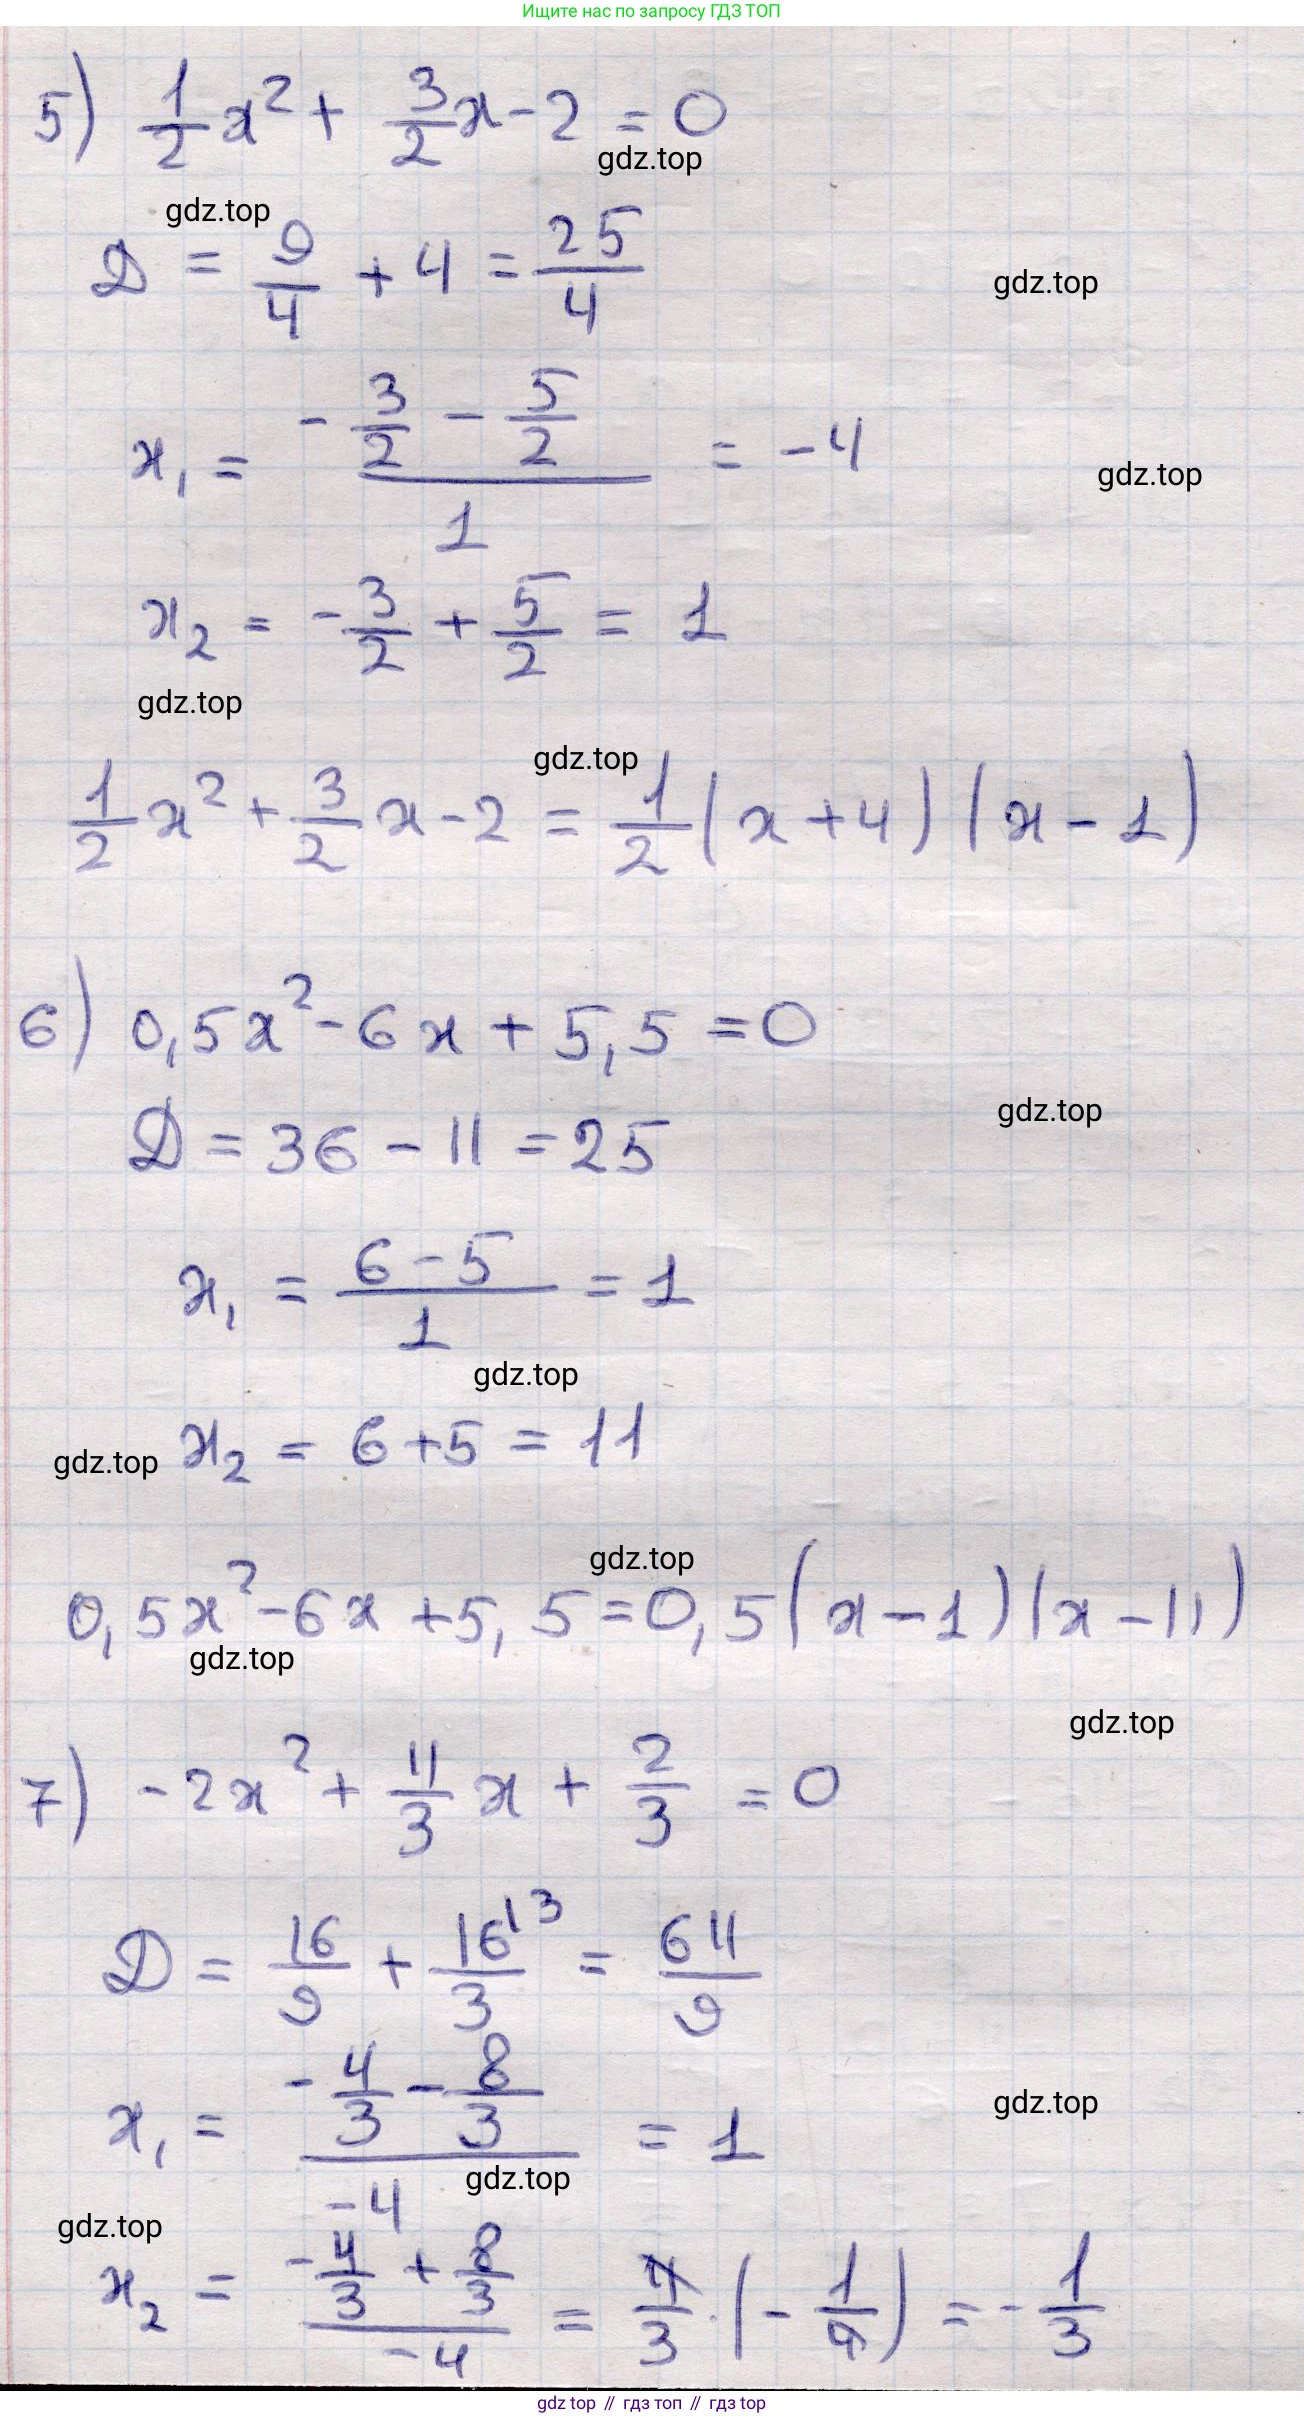 Ищите нас по запросу ГДЗ ТОП
5) 1/2 x² + 3/2 x - 2 = 0
gdz.top
gdz.top
D = 9/4 + 4 = 25/4
gdz.top
x₁ = (-3/2 - 5/2)/1 = -4
gdz.top
x₂ = -3/2 + 5/2 = 1
gdz.top
gdz.top
1/2 x² + 3/2 x - 2 = 1/2 (x + 4) (x - 1)
6) 0,5x² - 6x + 5,5 = 0
gdz.top
D = 36 - 11 = 25
x₁ = (6 - 5)/1 = 1
gdz.top
gdz.top x₂ = 6 + 5 = 11
gdz.top
0,5x² - 6x + 5,5 = 0,5(x - 1)(x - 11)
gdz.top
gdz.top
7) -2x² + 4/3 x + 2/3 = 0
D = 16/9 + 16/3 ^(13 = 64/9
gdz.top
x₁ = (-4/3 - 8/3)/-4 = 1
gdz.top
gdz.top
x₂ = (-4/3 + 8/3)/-4 = 4/3 · (-1/4) = -1/3
gdz top // гдз топ // гдз top